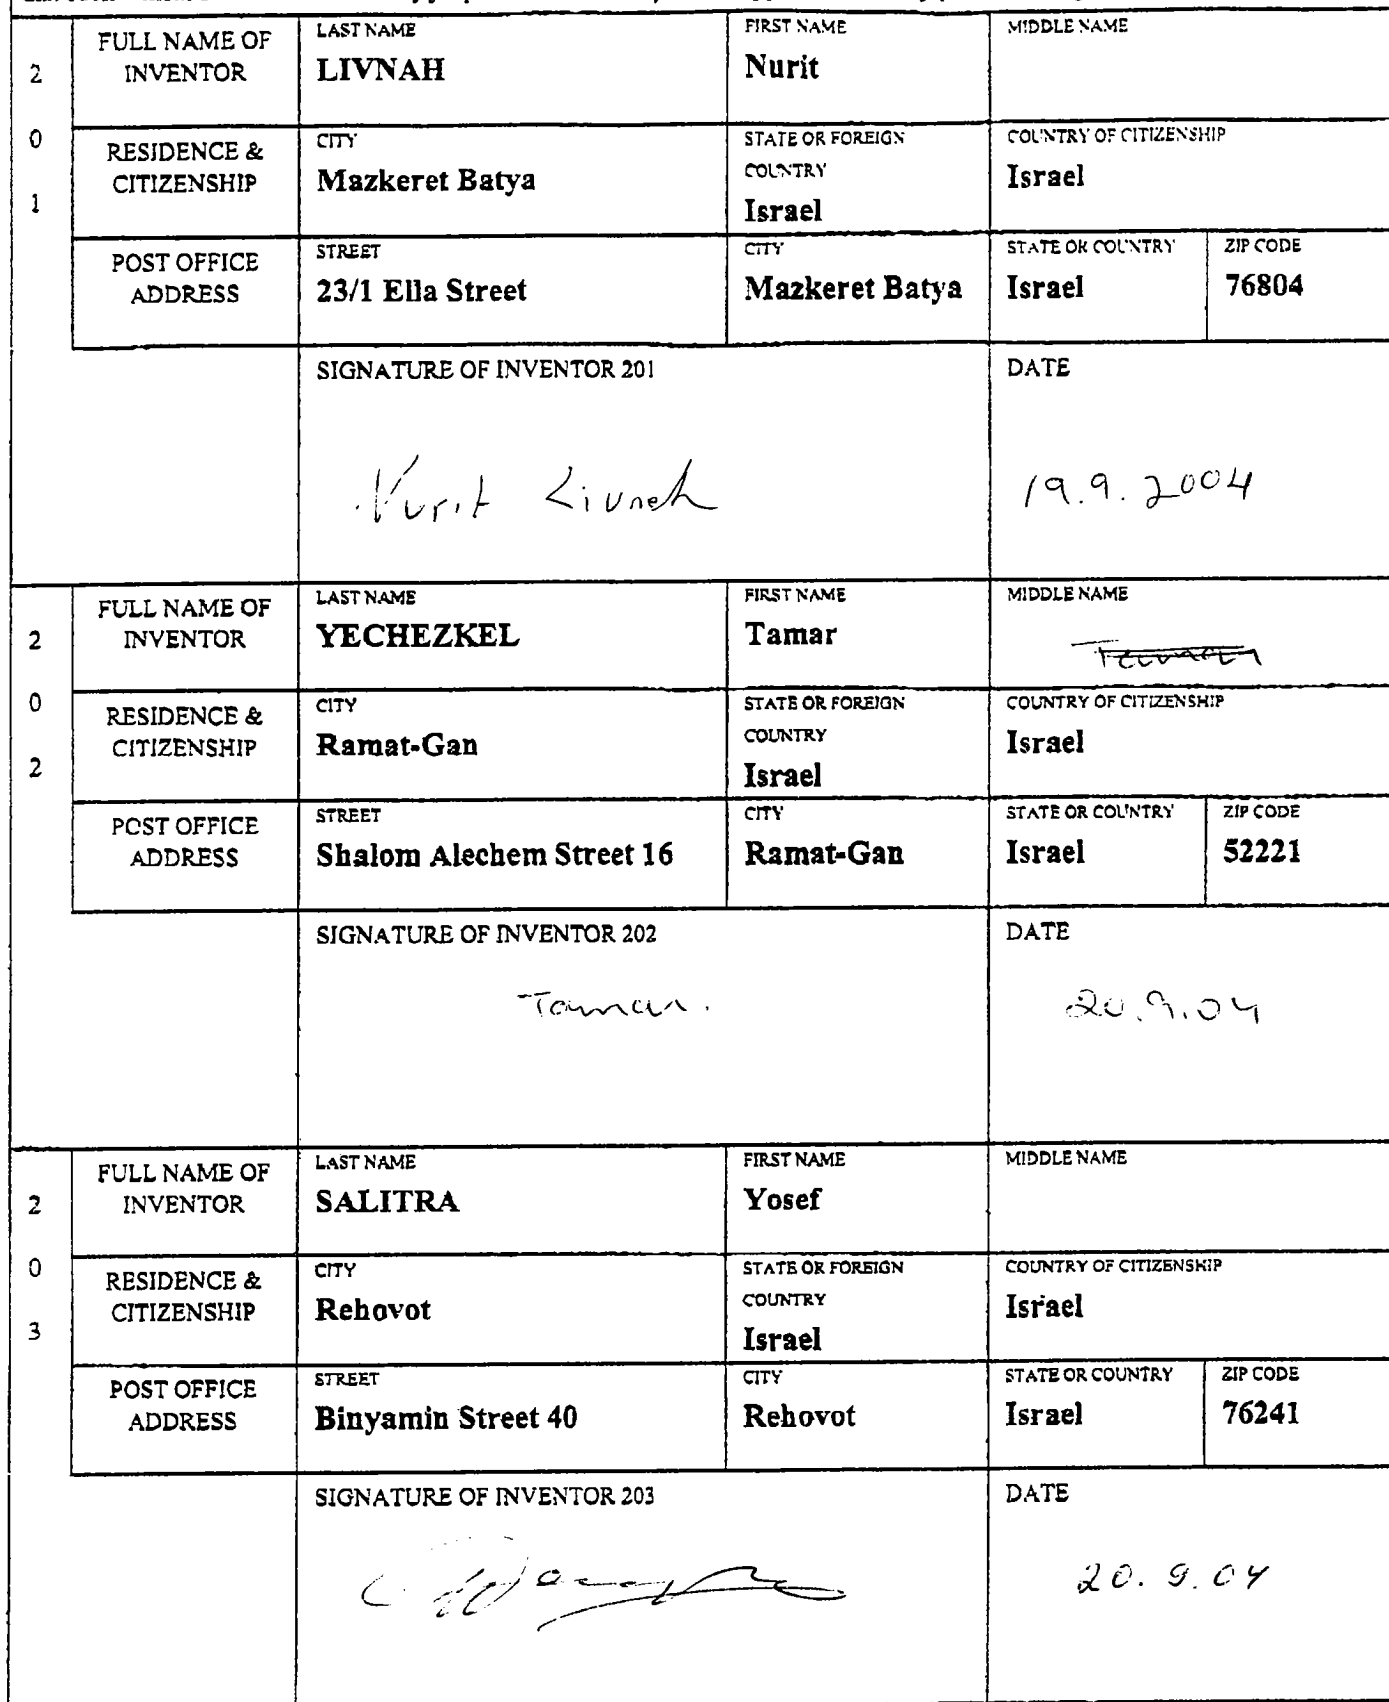 2 0 1
FULL NAME OF INVENTOR
LAST NAME
LIVNAH
FIRST NAME
Nurit
MIDDLE NAME
RESIDENCE & CITIZENSHIP
CITY
Mazkeret Batya
STATE OR FOREIGN COUNTRY
Israel
COUNTRY OF CITIZENSHIP
Israel
POST OFFICE ADDRESS
STREET
23/1 Ella Street
CITY
Mazkeret Batya
STATE OR COUNTRY
Israel
ZIP CODE
76804
SIGNATURE OF INVENTOR 201
Nurit Livneh
DATE
19.9.2004
2 0 2
FULL NAME OF INVENTOR
LAST NAME
YECHEZKEL
FIRST NAME
Tamar
MIDDLE NAME
RESIDENCE & CITIZENSHIP
CITY
Ramat-Gan
STATE OR FOREIGN COUNTRY
Israel
COUNTRY OF CITIZENSHIP
Israel
POST OFFICE ADDRESS
STREET
Shalom Alechem Street 16
CITY
Ramat-Gan
STATE OR COUNTRY
Israel
ZIP CODE
52221
SIGNATURE OF INVENTOR 202
Tamar.
DATE
20.9.04
2 0 3
FULL NAME OF INVENTOR
LAST NAME
SALITRA
FIRST NAME
Yosef
MIDDLE NAME
RESIDENCE & CITIZENSHIP
CITY
Rehovot
STATE OR FOREIGN COUNTRY
Israel
COUNTRY OF CITIZENSHIP
Israel
POST OFFICE ADDRESS
STREET
Binyamin Street 40
CITY
Rehovot
STATE OR COUNTRY
Israel
ZIP CODE
76241
SIGNATURE OF INVENTOR 203
DATE
20.9.04